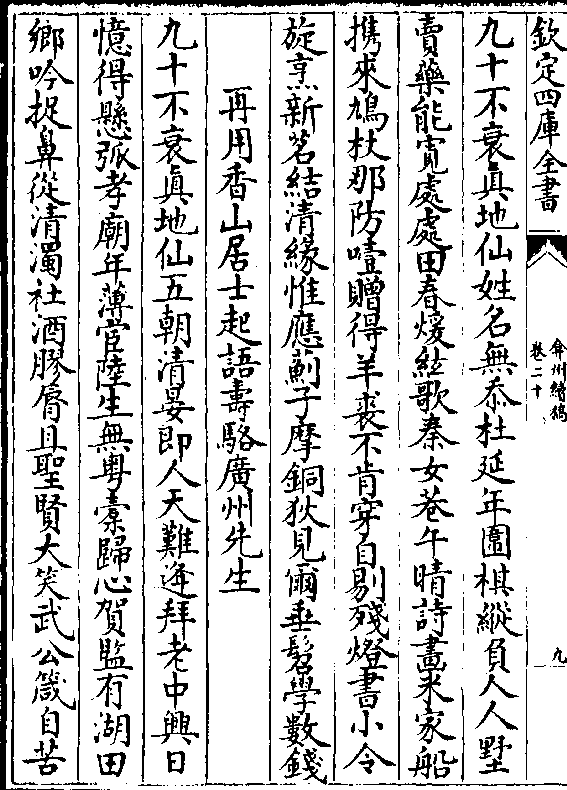 欽定四庫全書
弇州續稿
卷二十
九
九十不衰真地仙姓名無忝杜延年圍棋縱負人人墅
賣藥能寛處處田春煖絃歌秦女巷午晴詩畫米家船
携來鳩杖那防噎贈得羊裘不肯穿自剔殘燈書小令
旋烹新茗結清緣惟應薊子摩銅狄見爾垂髫學數錢
再用香山居士起語壽駱廣州先生
九十不衰真地仙五朝清晏即人天難逄拜老中興日
憶得懸弧孝廟年薄宦陸生無粤橐歸心賀監有湖田
鄉吟捉鼻從清濁社酒膠脣且聖賢大笑武公箴自苦